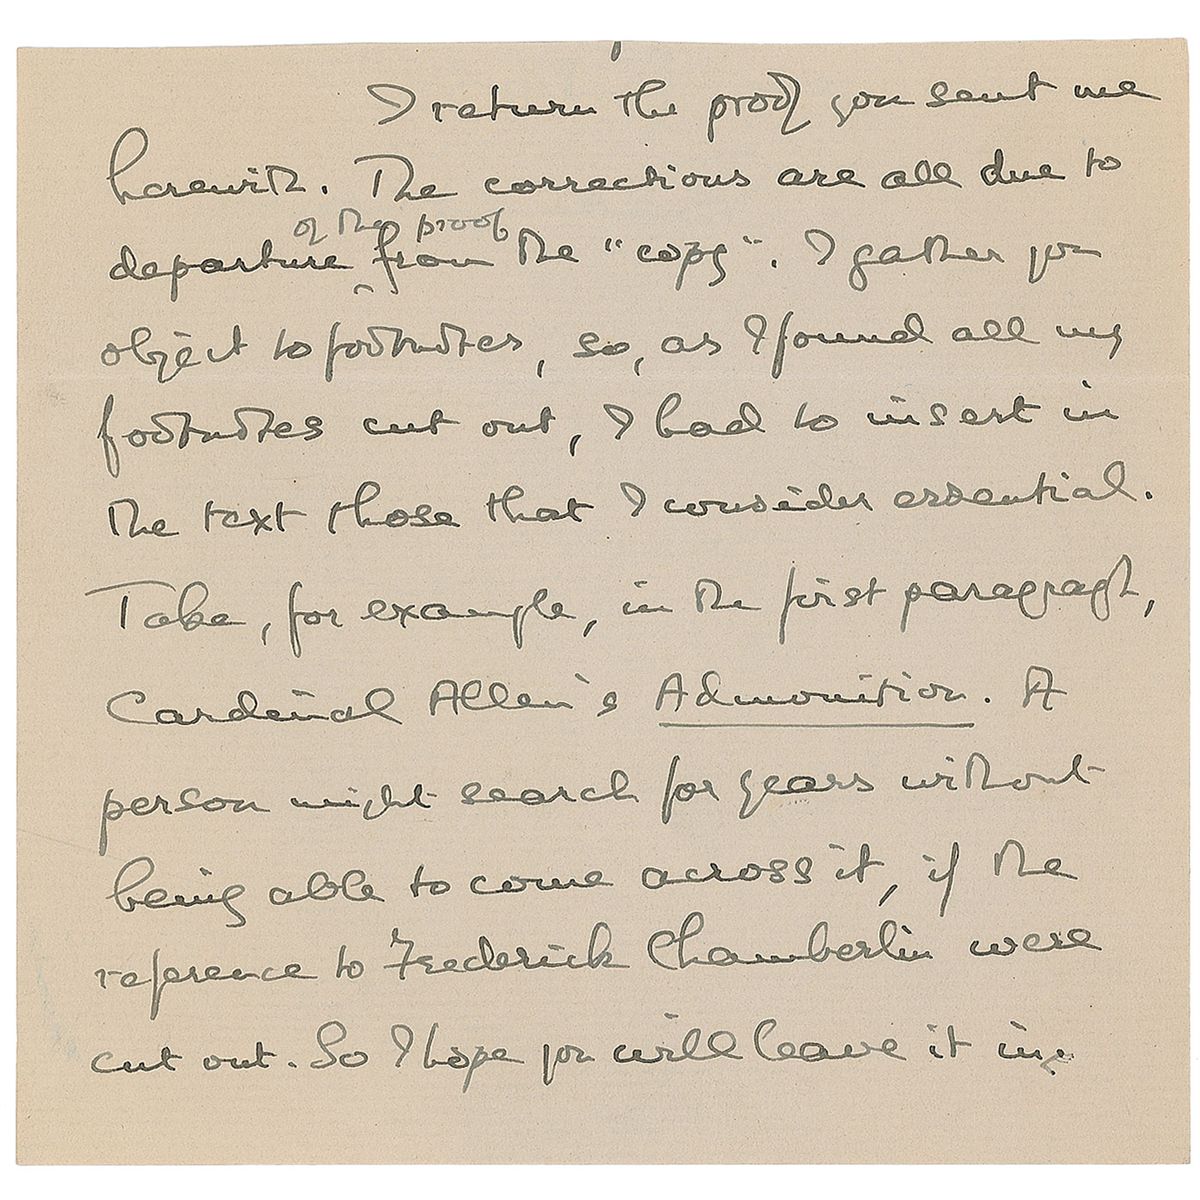 I return the proof you sent me
herewith. The corrections are all due to
of the proof
departure from the "copy". I gather you
object to footnotes, so, as I found all my
footnotes cut out, I had to insert in
the text those that I consider essential.
Take, for example, in the first paragraph,
Cardinal Allen's Admonition. A
person might search for years without
being able to come across it, if the
reference to Frederick Chamberlin were
cut out. So I hope you will leave it in.